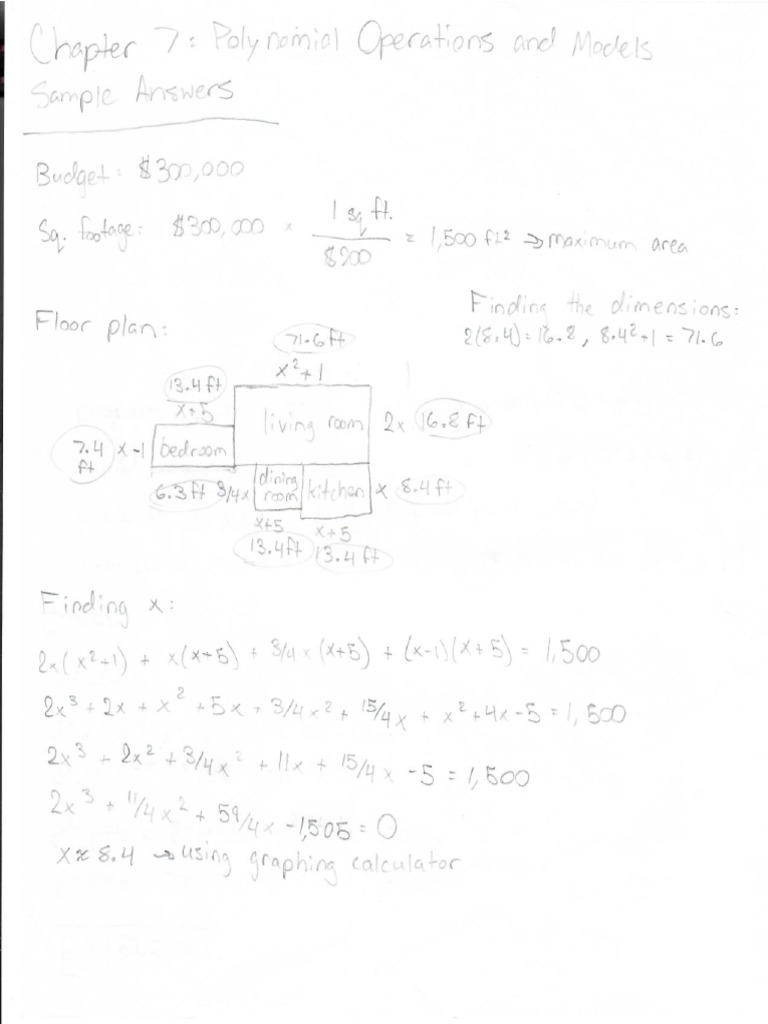 Chapter 7: Polynomial Operations and Models
Sample Answers
Budget: $300,000
Sq. footage: $300,000 × 1 sq ft. / $200 = 1,500 ft² → maximum area
Finding the dimensions:
2(8.4) = 16.8, 8.4² + 1 = 71.6
Floor plan:
71.6 ft
x² + 1
13.4 ft
x + 5
living room
2x 16.8 ft
7.4 ft
x - 1
bedroom
6.3 ft 3/4x
dining room
kitchen
x 8.4 ft
x + 5
x + 5
13.4 ft
13.4 ft
Finding x:
2x(x² + 1) + x(x + 5) + 3/4x(x + 5) + (x - 1)(x + 5) = 1,500
2x³ + 2x + x² + 5x + 3/4x² + 15/4x + x² + 4x - 5 = 1,500
2x³ + 2x² + 3/4x² + 11x + 15/4x - 5 = 1,500
2x³ + 11/4x² + 59/4x - 1,505 = 0
x ≈ 8.4 → using graphing calculator